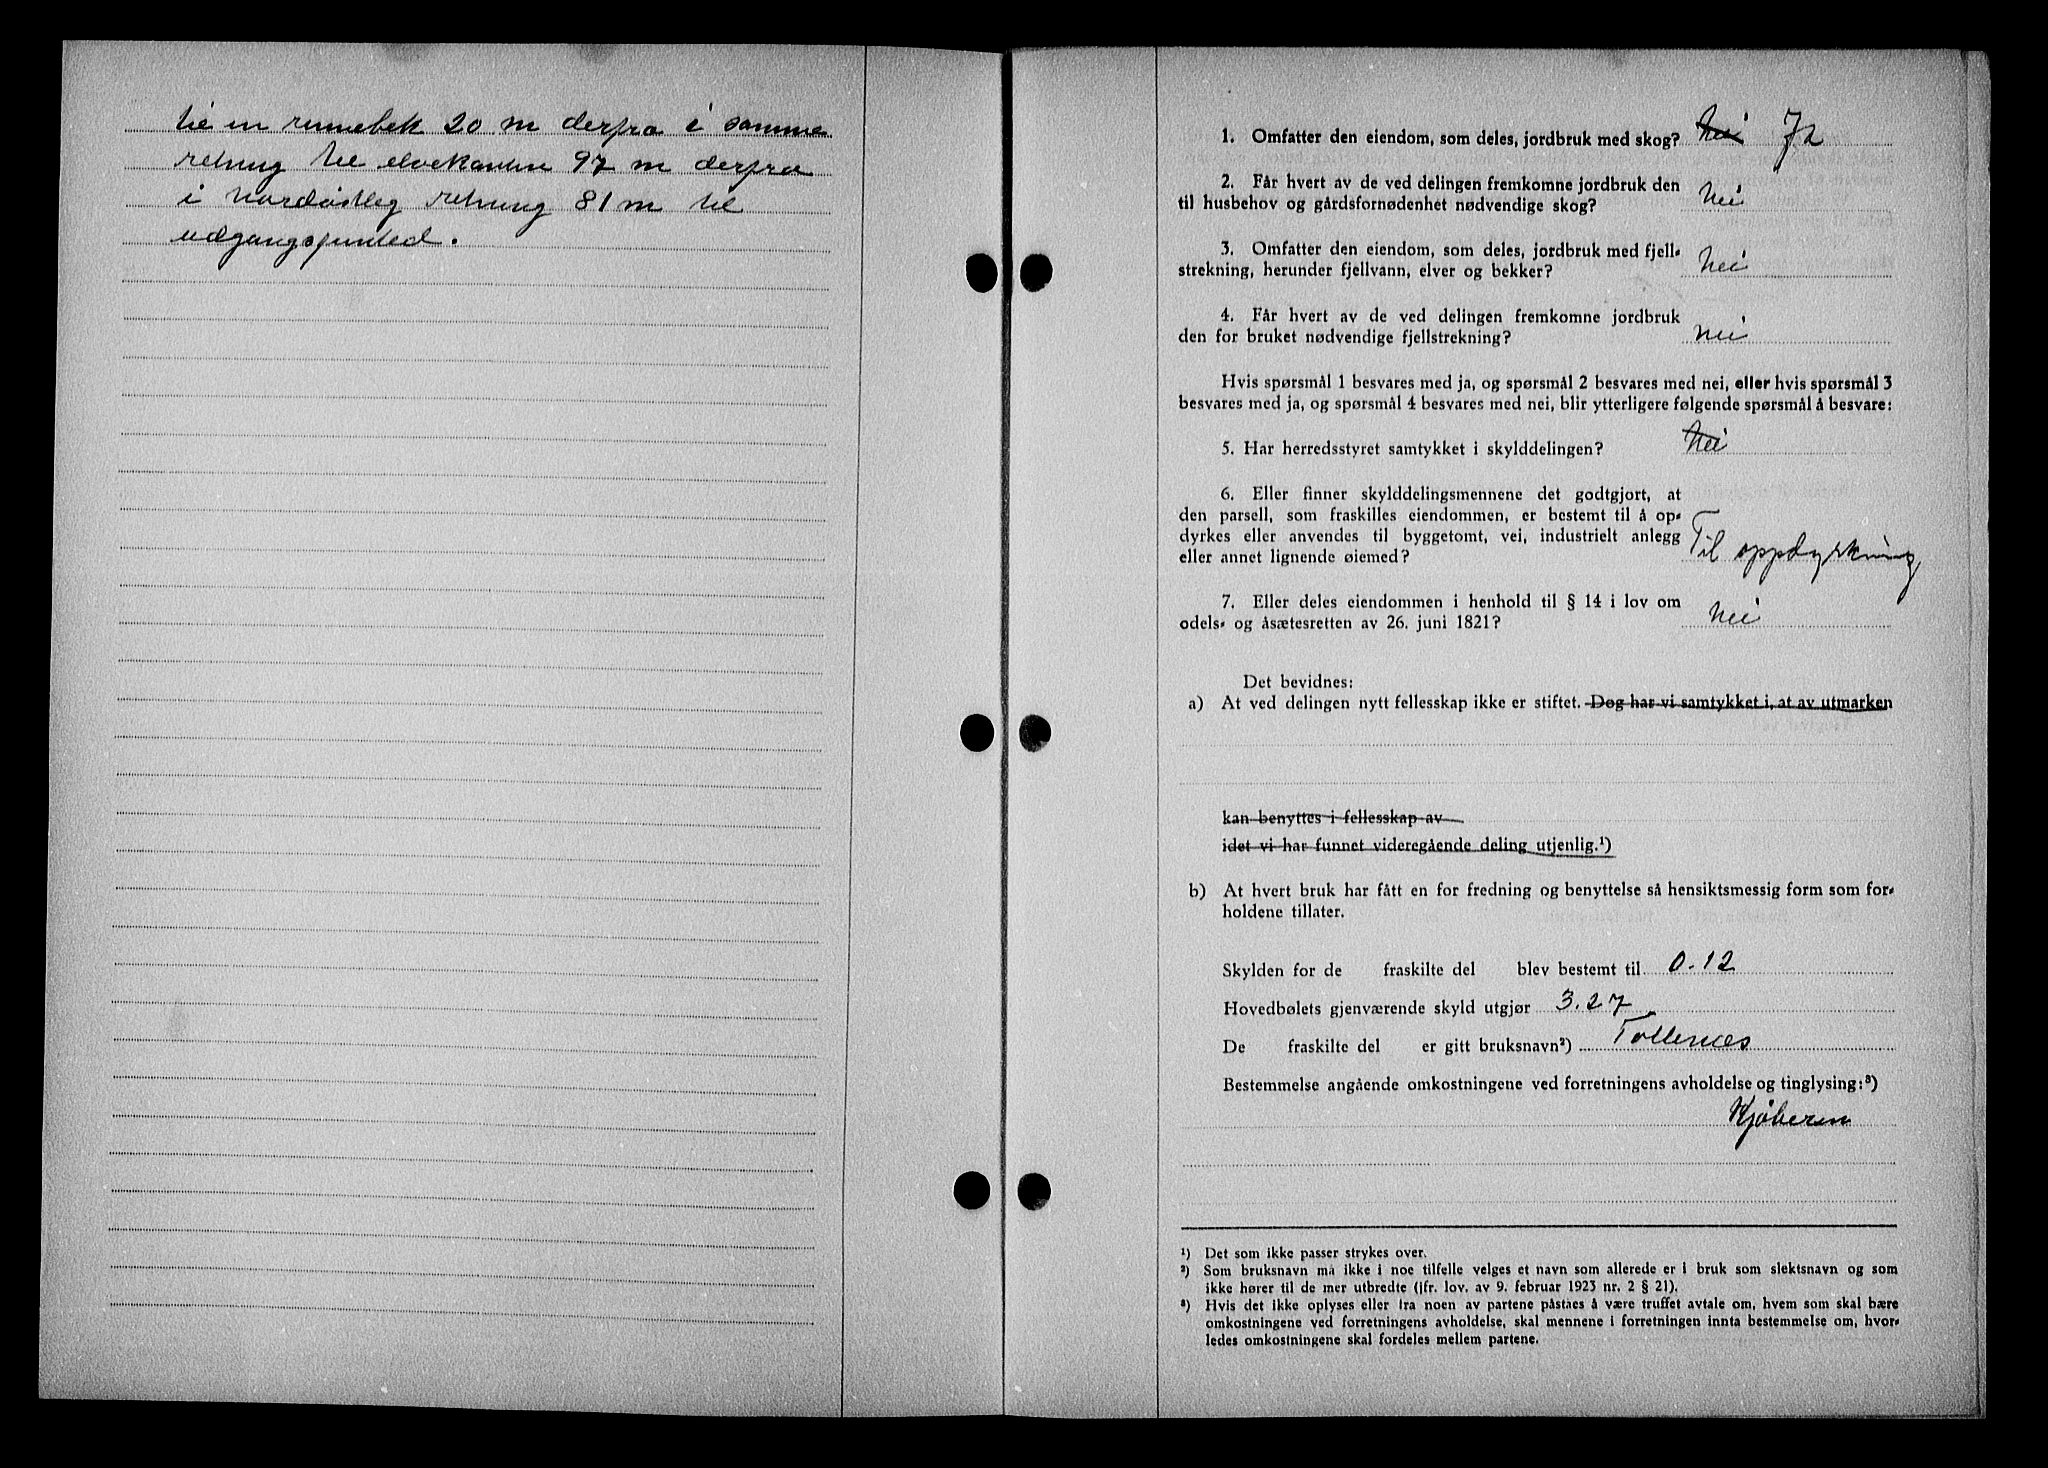 til en rennebek 20 m derfra i samme
retning til elvekanten 97 m derfra
i nordøstlig retning 81 m til
udgangspunted.
1. Omfatter den eiendom, som deles, jordbruk med skog? Nei Ja
2. Får hvert av de ved delingen fremkomne jordbruk den
til husbehov og gårdsfornødenhet nødvendige skog? Nei
3. Omfatter den eiendom, som deles, jordbruk med fjell-
strekning, herunder fjellvann, elver og bekker? Nei
4. Får hvert av de ved delingen fremkomne jordbruk
den for bruket nødvendige fjellstrekning? Nei
Hvis spørsmål 1 besvares med ja, og spørsmål 2 besvares med nei, eller hvis spørsmål 3
besvares med ja, og spørsmål 4 besvares med nei, blir ytterligere følgende spørsmål å besvare:
5. Har herredsstyret samtykket i skylddelingen? Nei
6. Eller finner skylddelingsmennene det godtgjort, at
den parsell, som fraskilles eiendommen, er bestemt til å op-
dyrkes eller anvendes til byggetomt, vei, industrielt anlegg
eller annet lignende øiemed? Til oppdyrkning
7. Eller deles eiendommen i henhold til § 14 i lov om
odels- og åsætesretten av 26. juni 1821? Nei
Det bevidnes:
a) At ved delingen nytt fellesskap ikke er stiftet. Dog har vi samtykket i, at av utmarken
kan benyttes i fellesskap av
idet vi har funnet videregående deling utjenlig.¹)
b) At hvert bruk har fått en for fredning og benyttelse så hensiktsmessig form som for-
holdene tillater.
Skylden for de fraskilte del blev bestemt til 0.12
Hovedbølets gjenværende skyld utgjør 3.27
De fraskilte del er gitt bruksnavn²) Tollenæs
Bestemmelse angående omkostningene ved forretningens avholdelse og tinglysing:³)
Kjøberen
¹) Det som ikke passer strykes over.
²) Som bruksnavn må ikke i noe tilfelle velges et navn som allerede er i bruk som slektsnavn og som
ikke hører til de mer utbredte (jfr. lov. av 9. februar 1923 nr. 2 § 21).
³) Hvis det ikke oplyses eller fra noen av partene påståes å være truffet avtale om, hvem som skal bære
omkostningene ved forretningens avholdelse, skal mennene i forretningen innta bestemmelse om, hvor-
ledes omkostningene skal fordeles mellem partene.